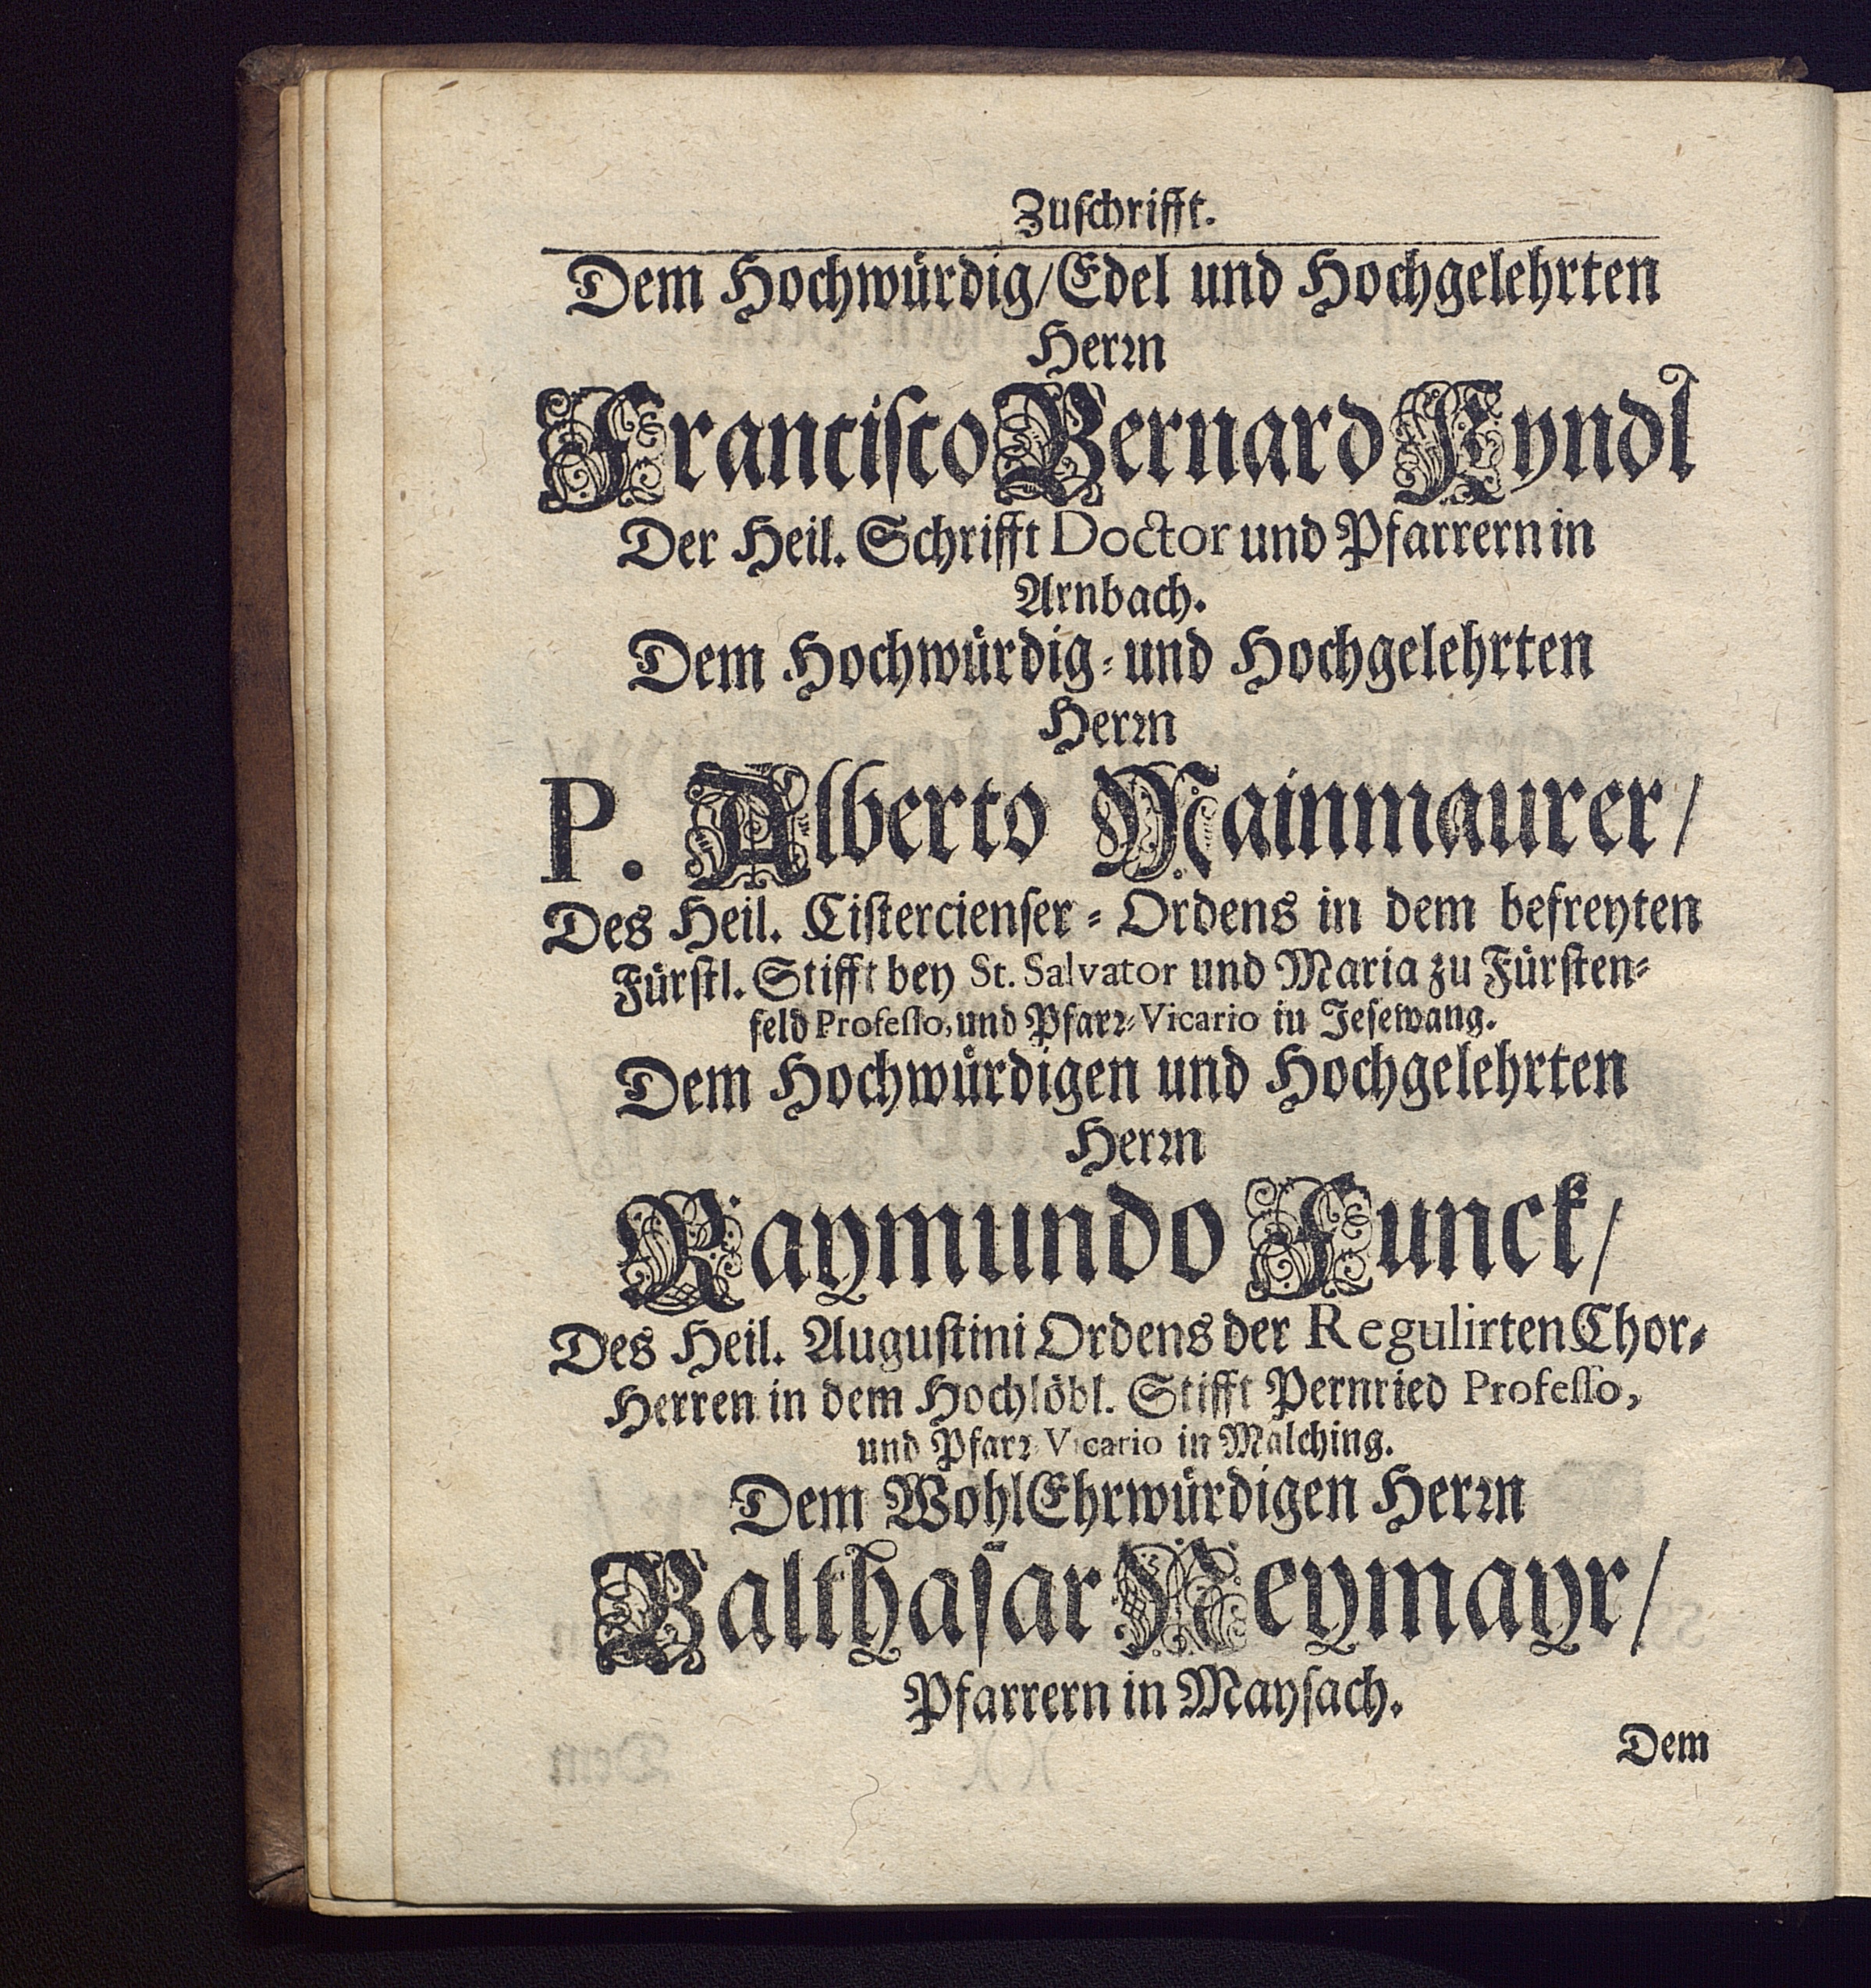 Zuſchrifft.
Dem Hochwürdig/Edel und Hochgelehrten
Herꝛn
Franciſco Bernard Kyndl
Der Heil. Schrifft Doctor und Pfarrern in
Arnbach.
Dem Hochwürdig⸗ und Hochgelehrten
Herꝛn
P. Alberto Mainmaurer/
Des Heil. Ciſtercienſer⸗Ordens in dem befreyten
Fürſtl. Stifft bey St. Salvator und Maria zu Fürſten⸗
feld Profeſſo, und Pfarꝛ⸗Vicario in Jeſewang.
Dem Hochwürdigen und Hochgelehrten
Herꝛn
Raymundo Funck/
Des Heil. Auguſtini Ordens der Regulirten Chor⸗
Herren in dem Hochlöbl. Stifft Pernried Profeſſo,
und Pfarꝛ Vicario in Malching.
Dem WohlEhrwürdigen Herꝛn
Balthaſar Neymayr/
Pfarrern in Mayſach.
Dem